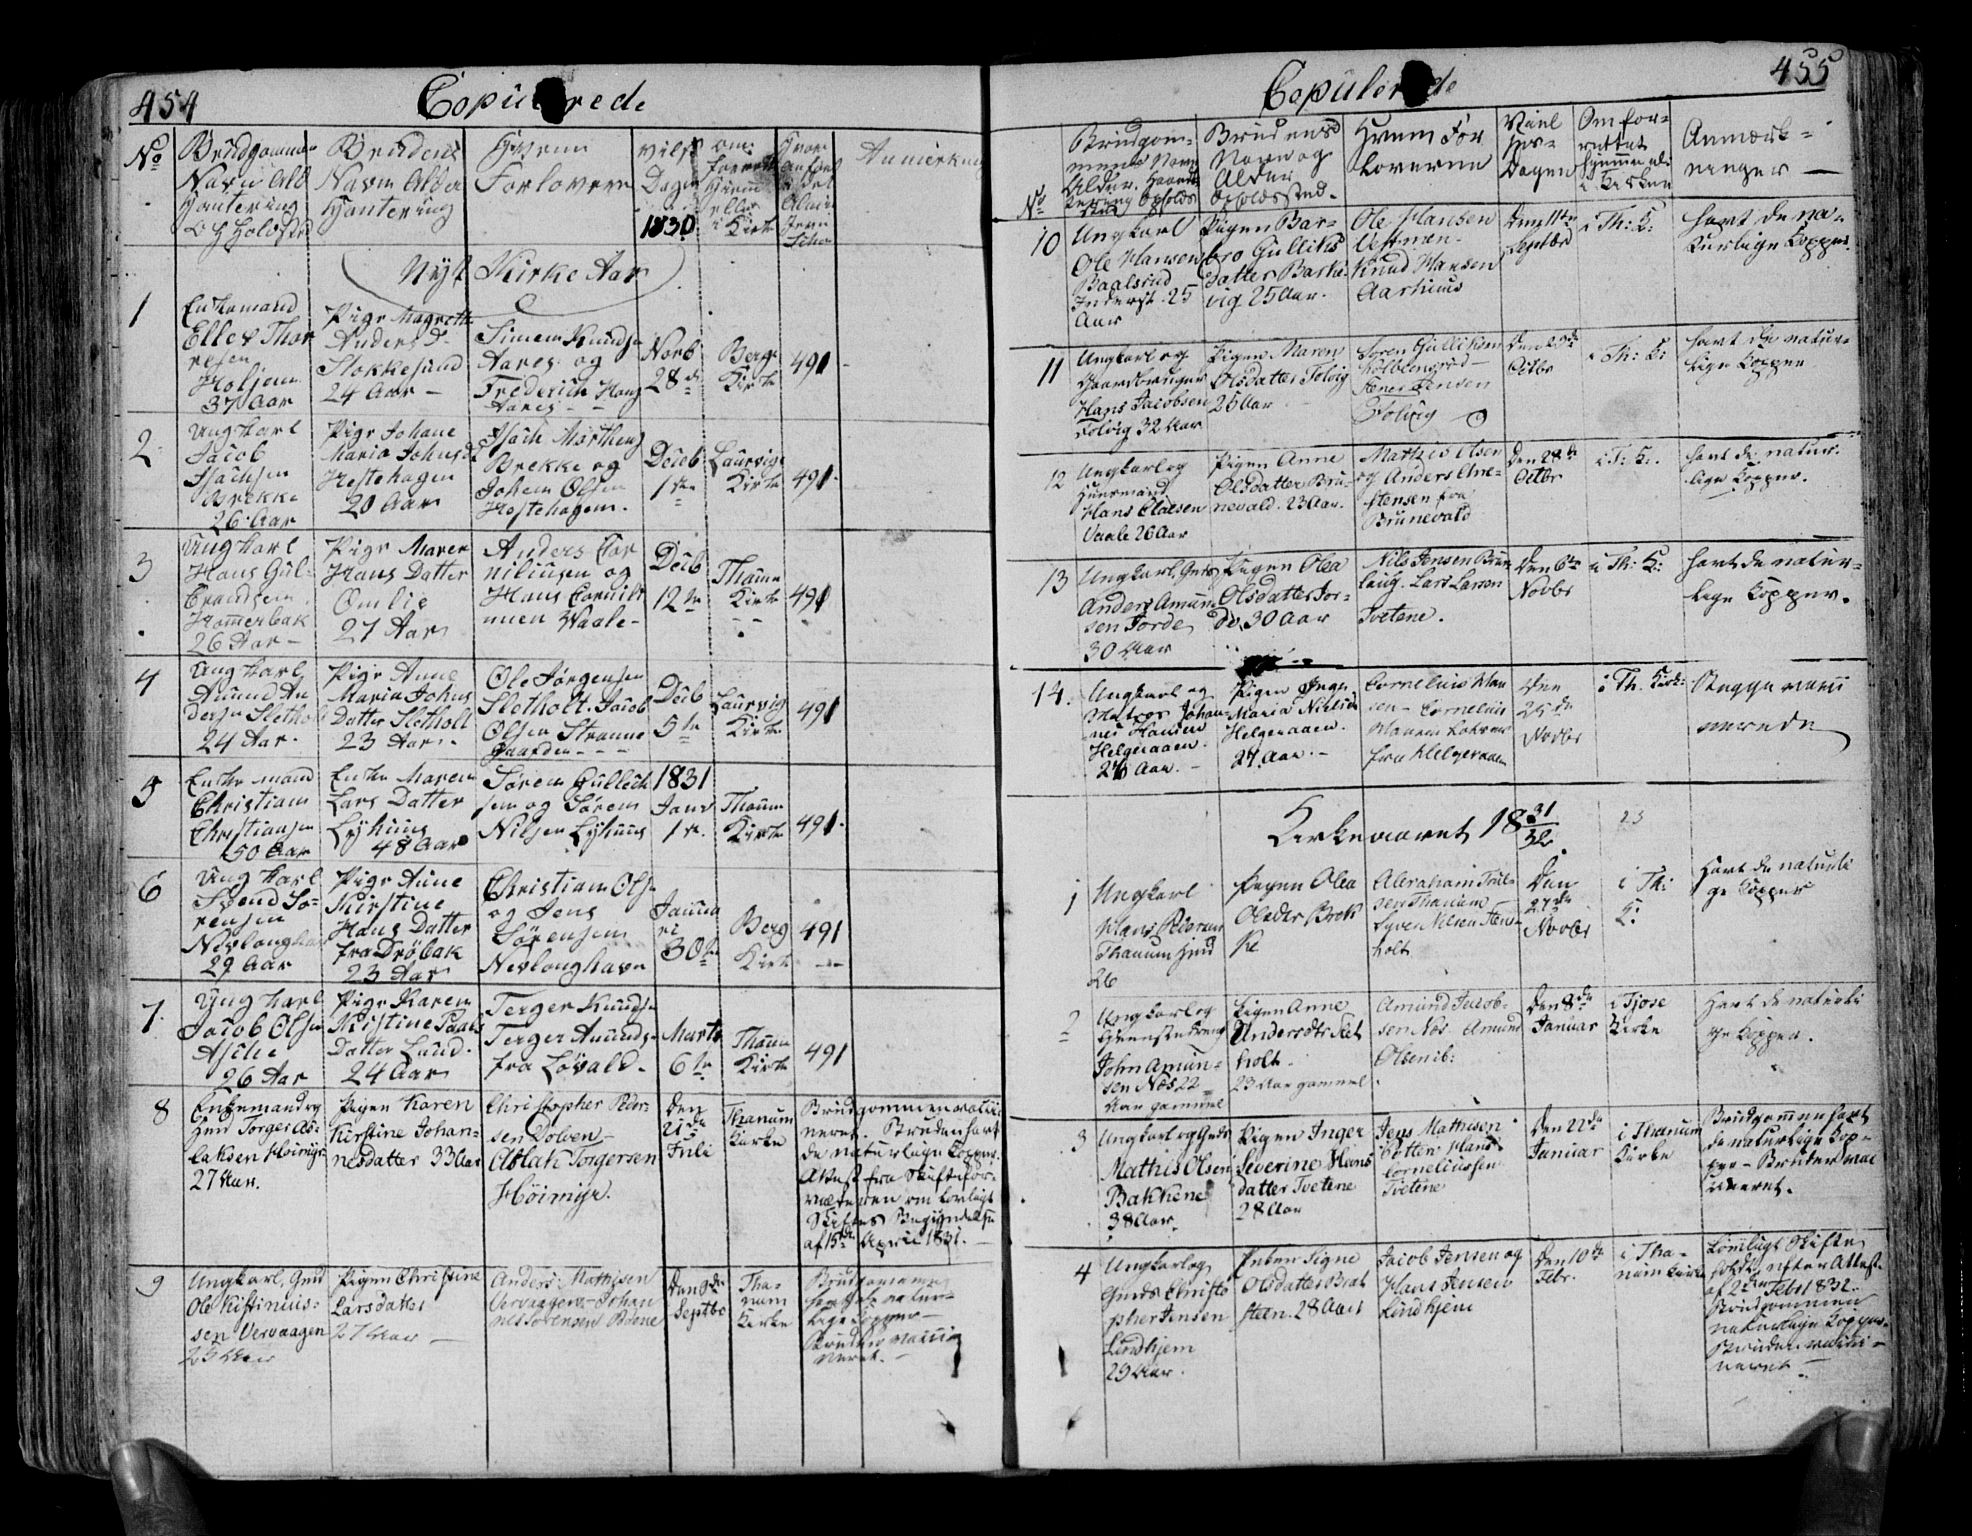 454
Copulerede
No
Brudgommens
Navn Alder
Hantering
Brudens
Navn Alder
Hantering
Hvem
Forloverne
Dagen
1830
Kirke
Anmerkning
Nyt Kirke Aar
1
Enkemand
Ellev Thor
resen
Holjem
37 Aar
Pige Magrethe
Anders D
Stokkesund
24 Aar
Simen Knuds
Aares og
Frederich Hans
Aares
Novb
28de
Berg
Kirke
491
2
Ung Karl
Jacob
Isachsen
Brekke
26 Aar
Pige Johane
Maria Johns D
Hestehagen
20 Aar
Isach Morthens
Brekke og
Johem Olsen
Hestehagen
Deceb
1ste
Laurvigs
Kirke
491
3
Ung Karl
Hans Gul-
brandsen
Hommerbak
26 Aar
Pige Maren
Hans Datter
Omlie
27 Aar
Anders Cor
niliusen og
Hans Cornili
usen Vaale
Decb
12te
Thanum
Kirke
491
4
Ung Karl
Amund An
dersen Sletholt
24 Aar
Pige Anne
Maria Johns
Datter Sletholt
23 Aar
Ole Jörgensen
Sletholt. Jacob
Olsen Stranne
gaarden
Decb
5te
Laurvig
Kirke
491
5
Enke mand
Christian
Christiansen
50 Aar
Enke Maren
Lars Datter
Lyhuus
48 Aar
Sören Gullich
sen og Sören
Nilsen Lyhuus
1831
Janv
1te
Thanum
Kirke
491
6
Ung Karl
Svend Sö-
rensen
Nevlonghavn
29 Aar
Pige Anne
Kirstine
Hans Datter
fra Dröbak
23 Aar
Christian Ols
og Jens
Sörensen
Nevlonghavn
Janua
ri
30te
Berg
Kirke
491
7
Ung Karl
Jacob Olsen
Aske
26 Aar
Pige Karen
Kirstine Pauls
Datter Lund
24 Aar
Terger Knuds
Terger Amunds
fra Lövald
Marts
6te
Thanum
Kirke
491
8
Enkemand og
Gmd Torger As-
laksen Höimyr
27 Aar.
Pigen Karen
Kirstine Johan-
nesdatter 33 Aar
Christopher Peder-
sen Dolven
Aslak Torgersen
Höimyr.
Den
21de
Juli
Thanum
Kirke
Brudgommen vacci
neret. Bruden havt
de naturlige Kopper.
Attest fra Skiftefor-
valteren om lovligt
Skiftes Begyndelse
af 15de April 1831.
9
Ungkarl, Gmd
Ole Kistinius-
sen Vervaagen
25 Aar
Pigen Christine
Larsdatter
27 Aar
Anders Mathisen
Vervaagen - Johan
nes Sörensen
Den 9de
Septbr
Tha-
num
Kirke
Brudgommen
havt de natur-
lige Kopper
Bruden vacci
neret.
455
Copulerede
No
Brudgom-
mens Navn
Alder. Haand-
tering Opholds
sted
Brudens
Navn og
Alder
Opholdssted
Hvem For
loverne
Viel
ses-
Dagen
Om for-
rettet
hjemme el.
i Kirken
Anmærk-
ninger
10
Ungkarl
Ole Hansen
Baalsrud
Inderst. 25
Aar
Pigen Bar-
bro Gulliks
datter Barke
vig 25 Aar.
Ole Hansen
Knud Hansen
Aarhuus
Den 11te
Septbr
i Th: K:
havt de na-
turlige Kopper
11
Ungkarl og
Gaardbruger
Hans Jacobsen
Folvig 32 Aar
Pigen Maren
Olsdatter Folvig
25 Aar
Soren Gulliksen
Jensen
Folvig
Octbr
i Th: K:
havt de natur-
lige Kopper
12
Ungkarl og
Huusmand
Hans Claesen
Vaale 26 Aar
Pigen Anne
Olsdatter Bru-
nevald. 23 Aar.
Mathis Olsen
og Anders Chri-
stensen fra
Brunevald
Den 28de
Octbr
i T: K:
havt de natur-
lige Kopper.
13
Ungkarl, Gmd
Anders Amund-
sen Torde
30 Aar
Pigen Olea
Olsdatter Tor-
de, 30 Aar
Nils Jensen Brun
laug. Lars Larsen
Tvetene.
Den 6te
Novbr
i Th: K:
havt de natur-
lige Kopper.
14.
Ungkarl og
Matros Johan-
nes Hansen
Helgeraaen
26 Aar.
Pigen Inge
Maria Nielsd
Helgeraaen.
24 Aar.
Cornelius Han
sen - Cornelius
fra Helgeraaen
Den
25de
Novbr
i Th. Kirke
Begge vacci
nerede
Kirkeaaret 1831/32
1
Ungkarl
Hans Pedersen
Thanum Gmd
26
Pigen Olea
Olsdtr Brek
ke
Abraham Trul-
sen Thanum
Syver Nilsen Sten-
holt
Den
27de
Novbr
i Th:
K:
Havt de naturli
ge Kopper
2
Ungkarl og
Tjenestedreng
John Amun-
sen Næs 22
Aar gammel
Pigen Anne
Andersdtr Slet
holt.
23 Aar gammel
Amund Jacob-
sen Næs Amund
Olsen ib:
Den 8de
Januar
i Tjose
Kirke
Havt de naturli
ge Kopper.
3
Ungkarl og Gmd
Mathis Olsen
Bakkene
38 Aar.
Pigen Inger
Severine Hans
datter Tvetene
28 Aar
Jens Mathisen
Hans
Corneliussen
Tvetene
Den 22de
Januar
i Thanum
Kirke
Brudgommen havt
de naturlige Kop-
per - Bruden vac
cineret.
4
Ungkarl og
Gmd Christo
pher Jensen
Lindhjem
29 Aar.
Pigen Signe
Olsdatter Brat
steen. 28 Aar
Jacob Jensen og
Hans Jensen
Lindhjem
Den 10de
Febr.
i Tha-
num Kirke
Lovligt Skifte
holdt, efter Attest
af 2den Febr 1832.
Brudgommen
naturlige Kopper
Bruden vacci-
neret